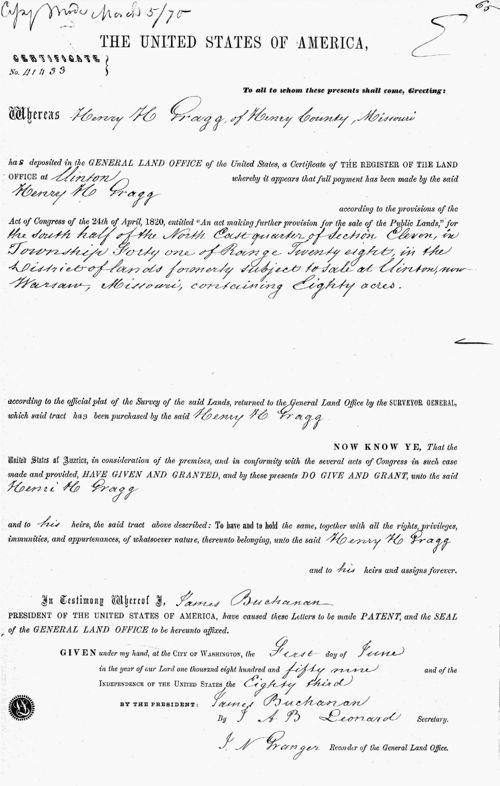 Copy Made March 5/70
THE UNITED STATES OF AMERICA,
CERTIFICATE
No. 41433
To all to whom these presents shall come, Greeting:
Whereas Henry H Gragg, of Henry County, Missouri
has deposited in the GENERAL LAND OFFICE of the United States, a Certificate of THE REGISTER OF THE LAND
OFFICE at Clinton whereby it appears that full payment has been made by the said
Henry H Gragg
according to the provisions of the
Act of Congress of the 24th of April, 1820, entitled "An act making further provision for the sale of the Public Lands," for
the South half of the North East quarter of Section Eleven, in
Township Forty one of Range Twenty eight, in the
District of lands formerly subject to sale at Clinton, now
Warsaw, Missouri, containing Eighty acres.
according to the official plat of the Survey of the said Lands, returned to the General Land Office by the SURVEYOR GENERAL,
which said tract has been purchased by the said Henry H Gragg
NOW KNOW YE, That the
United States of America, in consideration of the premises, and in conformity with the several acts of Congress in such case
made and provided, HAVE GIVEN AND GRANTED, and by these presents DO GIVE AND GRANT, unto the said
Henri H Gragg
and to his heirs, the said tract above described: To have and to hold the same, together with all the rights, privileges,
immunities, and appurtenances, of whatsoever nature, thereunto belonging, unto the said Henry H Gragg
and to his heirs and assigns forever.
In Testimony Whereof I, James Buchanan
PRESIDENT OF THE UNITED STATES OF AMERICA, have caused these Letters to be made PATENT, and the SEAL
of the GENERAL LAND OFFICE to be hereunto affixed.
GIVEN under my hand, at the CITY OF WASHINGTON, the First day of June
in the year of our Lord one thousand eight hundred and fifty nine and of the
INDEPENDENCE OF THE UNITED STATES the Eighty third
BY THE PRESIDENT: James Buchanan
By J A B Leonard Secretary.
J. N Granger Recorder of the General Land Office.